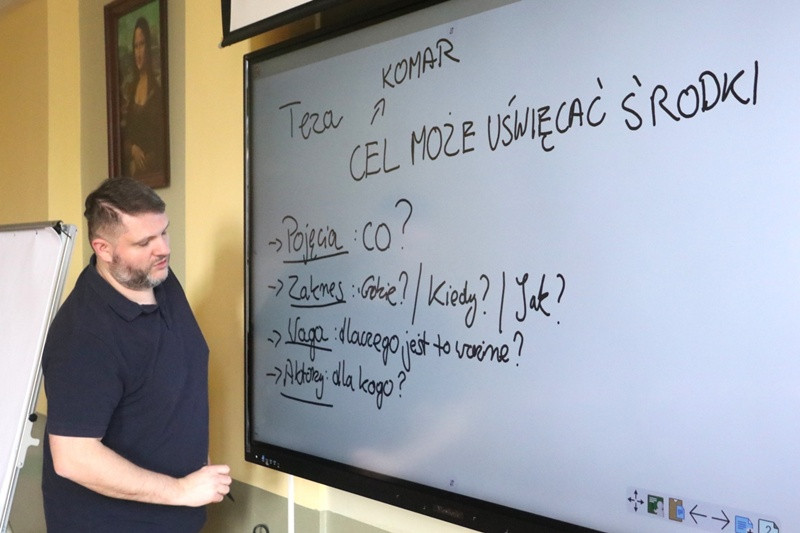 KOMAR
Teza
CEL MOŻE UŚWIĘCAĆ ŚRODKI
→ Pojęcia : CO?
→ Zakres : Gdzie? / Kiedy? / Jak?
→ Waga : dlaczego jest to ważne?
→ Aktorzy : dla kogo?